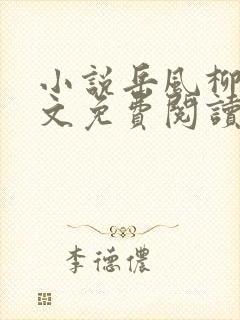 小説岳風柳
文免費閱讀
李德儂